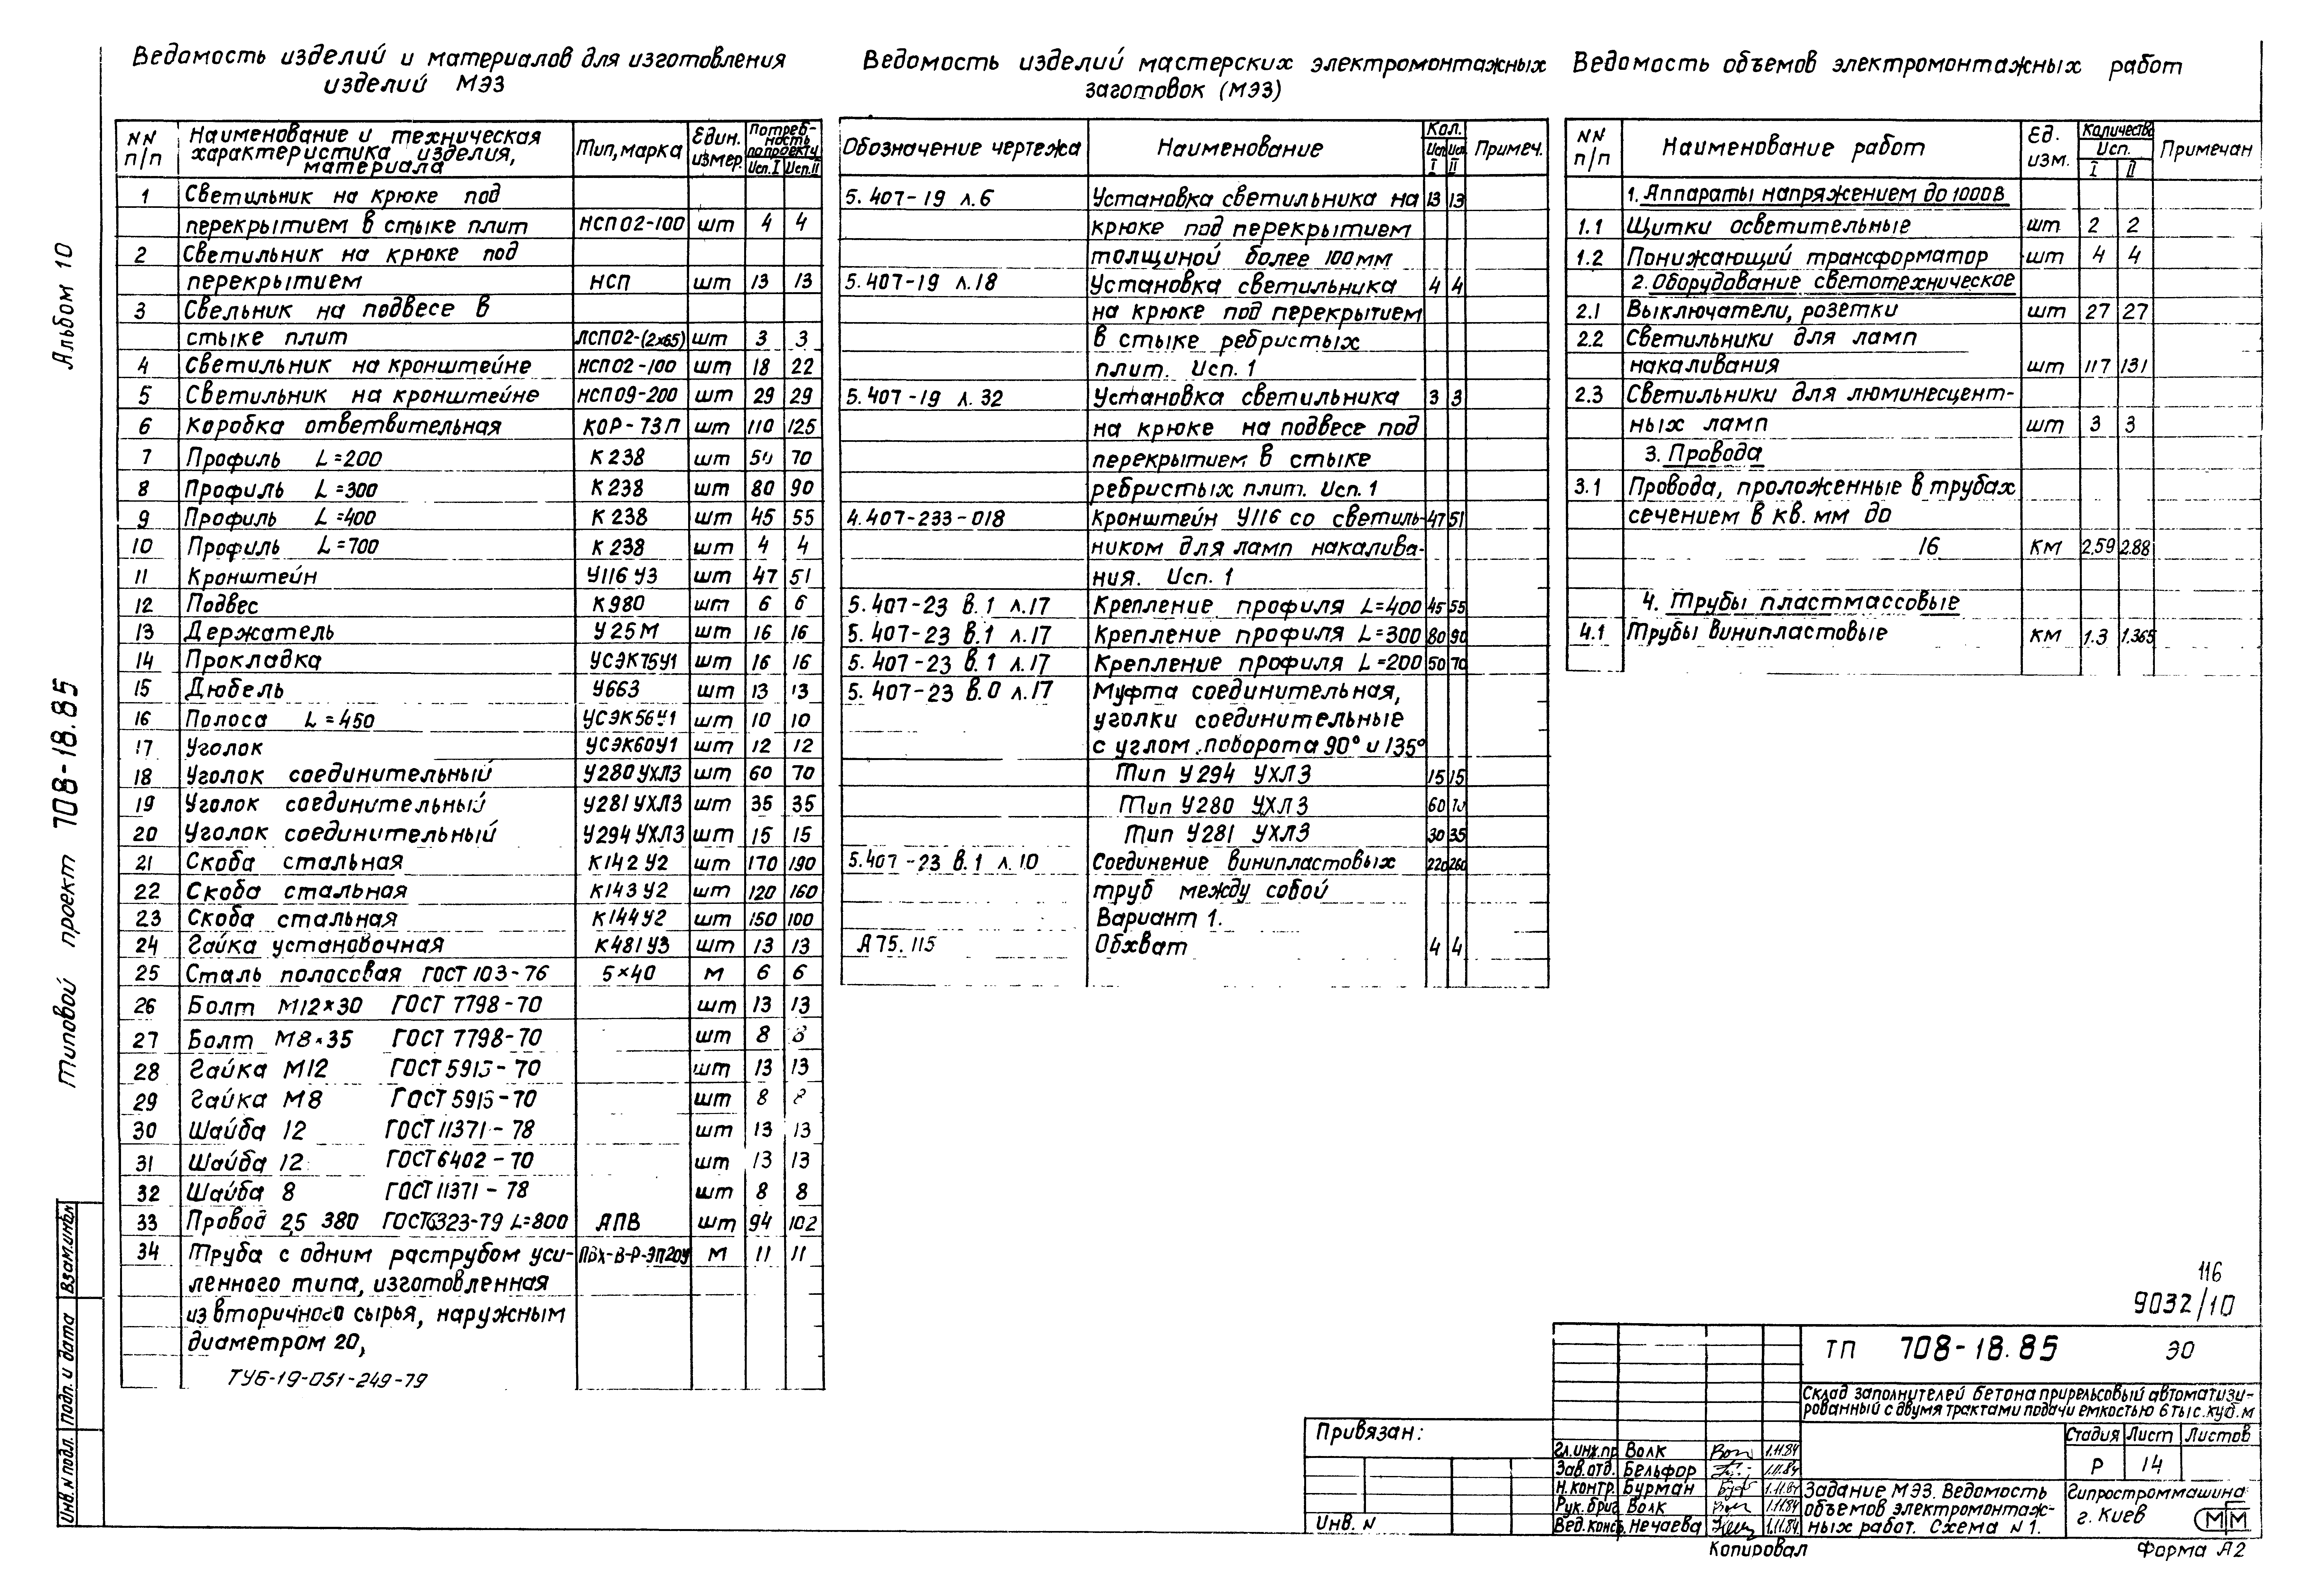 Альбом 10
Типовой проект 708-18.85
Взам.инв.N
Подп. и дата
Инв.N подл.
Ведомость изделий и материалов для изготовления
изделий МЭЗ
NN п/п | Наименование и техническая характеристика изделия, материала | Тип, марка | Един. измер. | Потребность по проекту Исп.I | Исп.II
1 Светильник на крюке под
перекрытием в стыке плит НСП02-100 шт 4 4
2 Светильник на крюке под
перекрытием НСП шт 13 13
3 Свельник на подвесе в
стыке плит ЛСП02-(2×65) шт 3 3
4 Светильник на кронштейне НСП02-100 шт 18 22
5 Светильник на кронштейне НСП09-200 шт 29 29
6 Коробка ответвительная КОР-73П шт 110 125
7 Профиль L=200 К238 шт 50 70
8 Профиль L=300 К238 шт 80 90
9 Профиль L=400 К238 шт 45 55
10 Профиль L=700 К238 шт 4 4
11 Кронштейн У116 У3 шт 47 51
12 Подвес К980 шт 6 6
13 Держатель У25М шт 16 16
14 Прокладка УСЭК75У1 шт 16 16
15 Дюбель У663 шт 13 13
16 Полоса L=450 УСЭК56У1 шт 10 10
17 Уголок УСЭК60У1 шт 12 12
18 Уголок соединительный У280 УХЛ3 шт 60 70
19 Уголок соединительный У281 УХЛ3 шт 35 35
20 Уголок соединительный У294 УХЛ3 шт 15 15
21 Скоба стальная К142 У2 шт 170 190
22 Скоба стальная К143 У2 шт 120 160
23 Скоба стальная К144У2 шт 150 100
24 Гайка установочная К481 У3 шт 13 13
25 Сталь полосовая ГОСТ 103-76 5×40 м 6 6
26 Болт М12×30 ГОСТ 7798-70 шт 13 13
27 Болт М8×35 ГОСТ 7798-70 шт 8 8
28 Гайка М12 ГОСТ 5915-70 шт 13 13
29 Гайка М8 ГОСТ 5915-70 шт 8 8
30 Шайба 12 ГОСТ 11371-78 шт 13 13
31 Шайба 12 ГОСТ 6402-70 шт 13 13
32 Шайба 8 ГОСТ 11371-78 шт 8 8
33 Провод 2,5 380 ГОСТ6323-79 L=800 АПВ шт 94 102
34 Труба с одним раструбом уси- ПВХ-В-Р-ЭП20У м 11 11
ленного типа, изготовленная
из вторичного сырья, наружным
диаметром 20,
ТУ6-19-051-249-79
Ведомость изделий мастерских электромонтажных
заготовок (МЭЗ)
Обозначение чертежа | Наименование | Кол. Исп I | Исп II | Примеч.
5.407-19 л.6 Установка светильника на 13 13
крюке под перекрытием
толщиной более 100мм
5.407-19 л.18 Установка светильника 4 4
на крюке под перекрытием
в стыке ребристых
плит. Исп. 1
5.407-19 л.32 Установка светильника 3 3
на крюке на подвесе под
перекрытием в стыке
ребристых плит. Исп. 1
4.407-233-018 Кронштейн У116 со светиль- 47 51
ником для ламп накалива-
ния. Исп. 1
5.407-23 в.1 л.17 Крепление профиля L=400 45 55
5.407-23 в.1 л.17 Крепление профиля L=300 80 90
5.407-23 в.1 л.17 Крепление профиля L=200 50 70
5.407-23 в.0 л.17 Муфта соединительная,
уголки соединительные
с углом поворота 90° и 135°
Тип У294 УХЛ3 15 15
Тип У280 УХЛ3 60 70
Тип У281 УХЛ3 30 35
5.407-23 в.1 л.10 Соединение винипластовых 220 260
труб между собой
Вариант 1.
А75.115 Обхват 4 4
Ведомость объемов электромонтажных работ
NN п/п | Наименование работ | Ед. изм. | Количество Исп. I | II | Примечан
1. Аппараты напряжением до 1000В
1.1 Щитки осветительные шт 2 2
1.2 Понижающий трансформатор шт 4 4
2. Оборудование светотехническое
2.1 Выключатели, розетки шт 27 27
2.2 Светильники для ламп
накаливания шт 117 131
2.3 Светильники для люминесцент-
ных ламп шт 3 3
3. Провода
3.1 Провода, проложенные в трубах
сечением в кв. мм до
16 км 2.59 2.88
4. Трубы пластмассовые
4.1 Трубы винипластовые км 1.3 1.365
116
9032/10
ТП 708-18.85 ЭО
Склад заполнителей бетона прирельсовый автоматизи-
рованный с двумя трактами подачи емкостью 6 тыс.куб.м
Стадия Лист Листов
Р 14
Привязан:
Инв. N
Гл.инж.пр Волк 1.11.84
Зав.отд. Бельфор 1.11.84
Н.контр. Бурман 1.11.84
Рук.бриг Волк 1.11.84
Вед.конст. Нечаева 1.11.84
Задание МЭЗ. Ведомость
объемов электромонтаж-
ных работ. Схема N1.
Гипростроммашина
г. Киев
Копировал
Форма А2